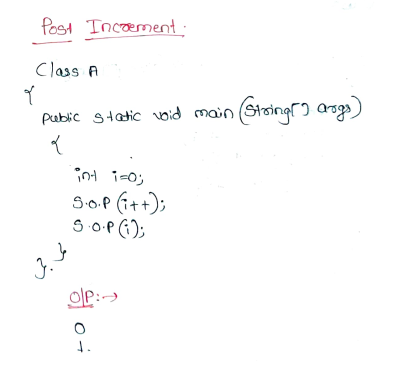 Post Increment.
Class A
{
public static void main (String[] args)
{
int i=0;
S.O.P (i++);
S.O.P (i);
}
}.
O/P:→
0
1.